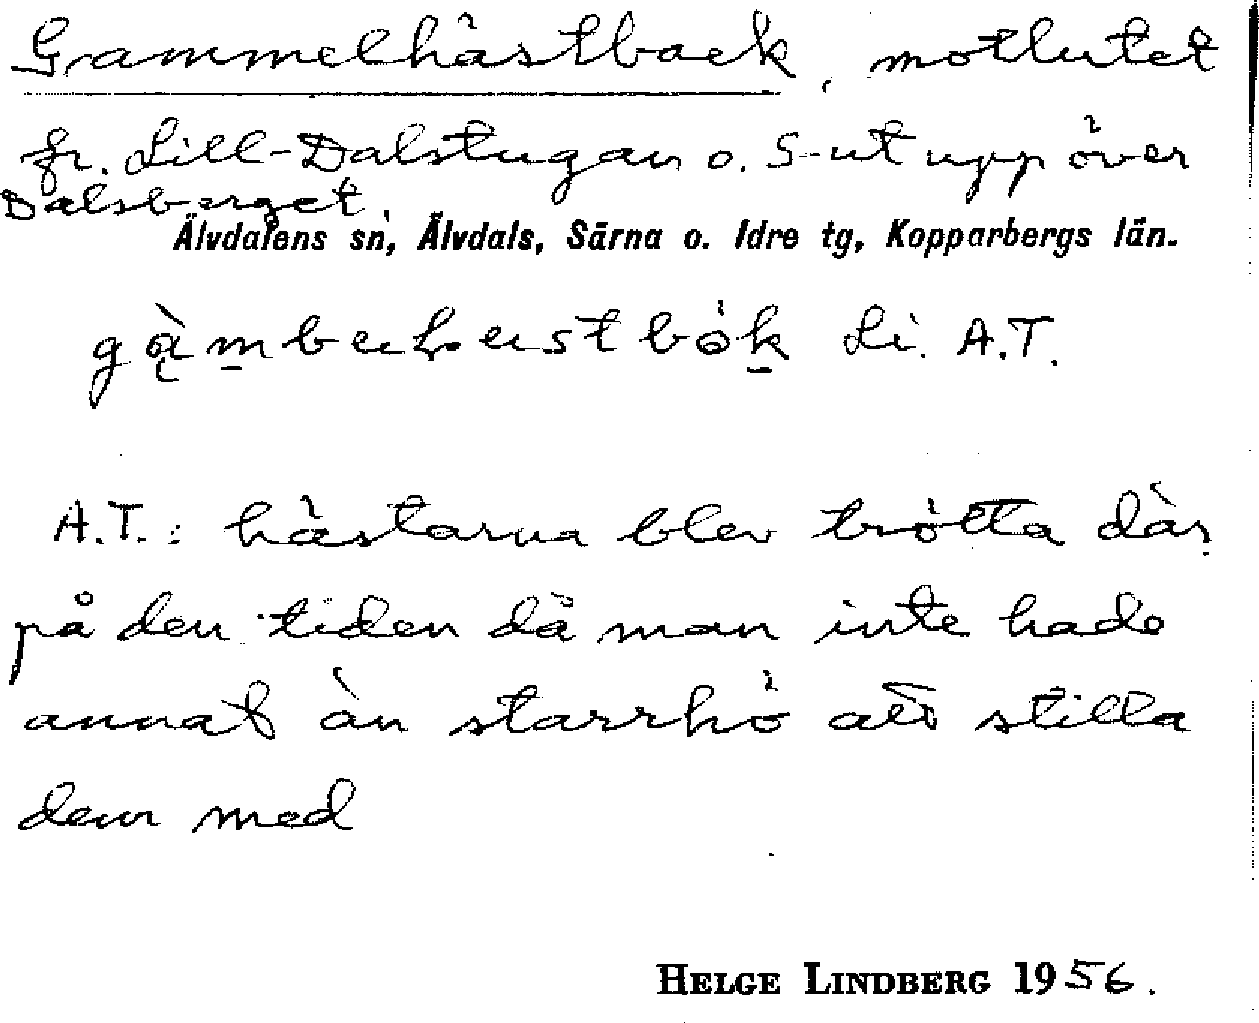 Gammelhästback, motlutet
fr. Lill-Dalstugan o. S-ut upp över
Dalsberget.
Älvdalens sn, Älvdals, Särna o. Idre tg, Kopparbergs län.
Li. A.T.
A.T.: hästarna blev trötta där
på den tiden då man inte hade
annat än starrhö att stilla
dem med
HELGE LINDBERG 1956.